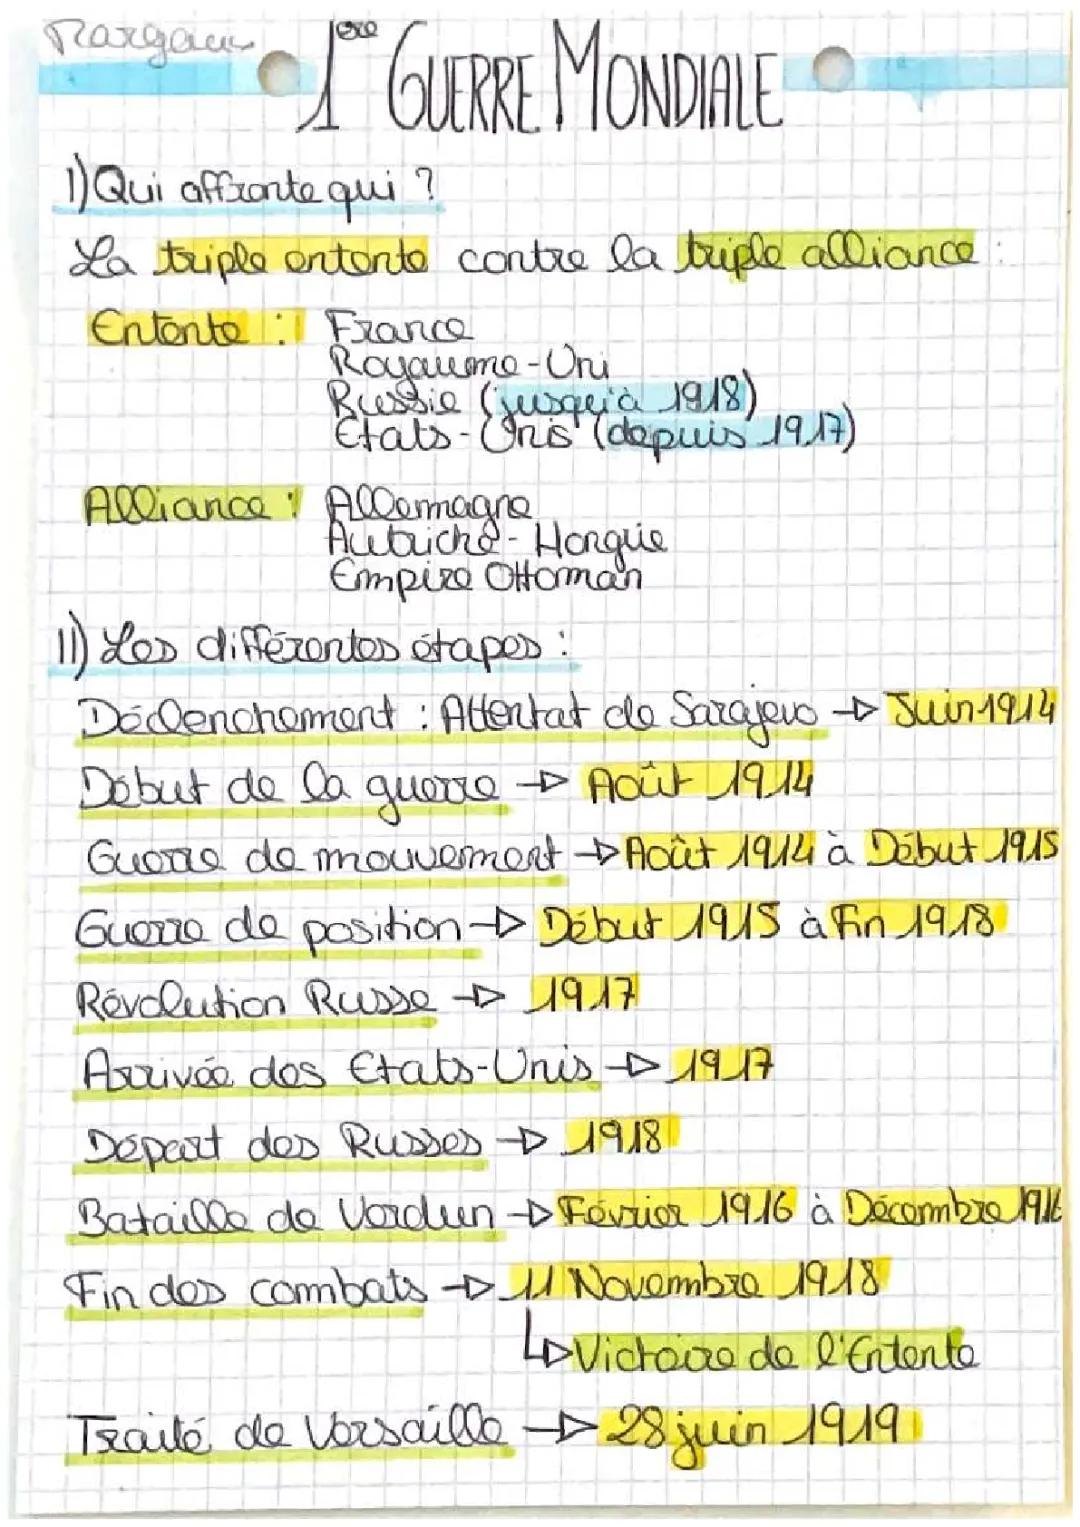 Margaux
1ère GUERRE MONDIALE
I) Qui affronte qui ?
La triple entente contre la triple alliance :
Entente : France
Royaume-Uni
Russie (jusqu'à 1918)
Etats-Unis (depuis 1917)
Alliance : Allemagne
Autriche-Hongrie
Empire Ottoman
II) Les différentes étapes :
Déclenchement : Attentat de Sarajevo → Juin 1914
Début de la guerre → Août 1914
Guerre de mouvement → Août 1914 à Début 1915
Guerre de position → Début 1915 à Fin 1918
Révolution Russe → 1917
Arrivée des Etats-Unis → 1917
Départ des Russes → 1918
Bataille de Verdun → Février 1916 à Décembre 1916
Fin des combats → 11 Novembre 1918
↳ Victoire de l'Entente
Traité de Versaille → 28 juin 1919